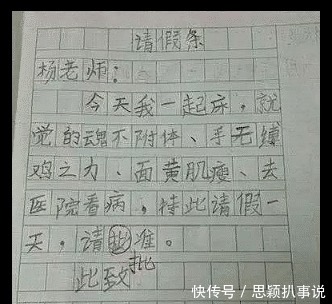 请假条
杨老师：
今天我一起床，就
觉的魂不附体、手无缚
鸡之力、面黄肌瘦、去
医院看病，特此请假一
天，请批准。
批
此致
快传号 / 思颖扒事说